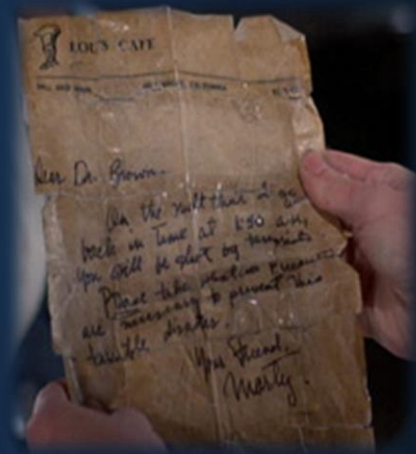 LOU'S CAFE
Dear Dr. Brown.
On the night that I go
back in time at 1:30 a.m.,
You will be shot by terrorists
Please take whatever precautions
are necessary to prevent this
terrible disaster.
Your Friend.
Marty.